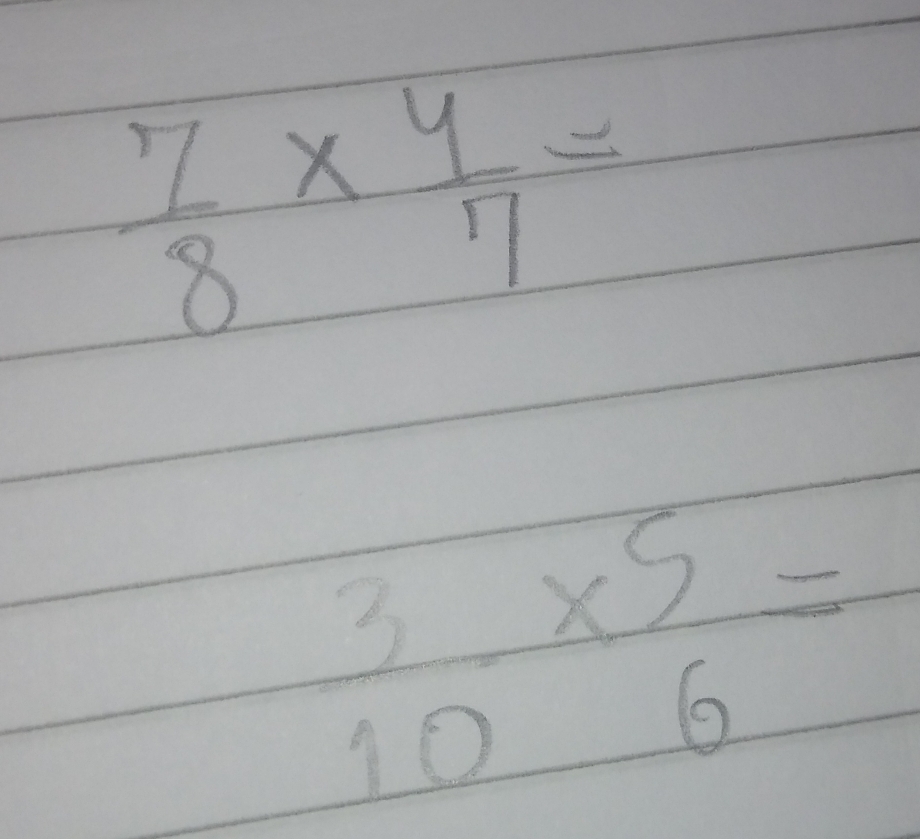 7/8 x 4/7 =
3/10 x 5/6 =